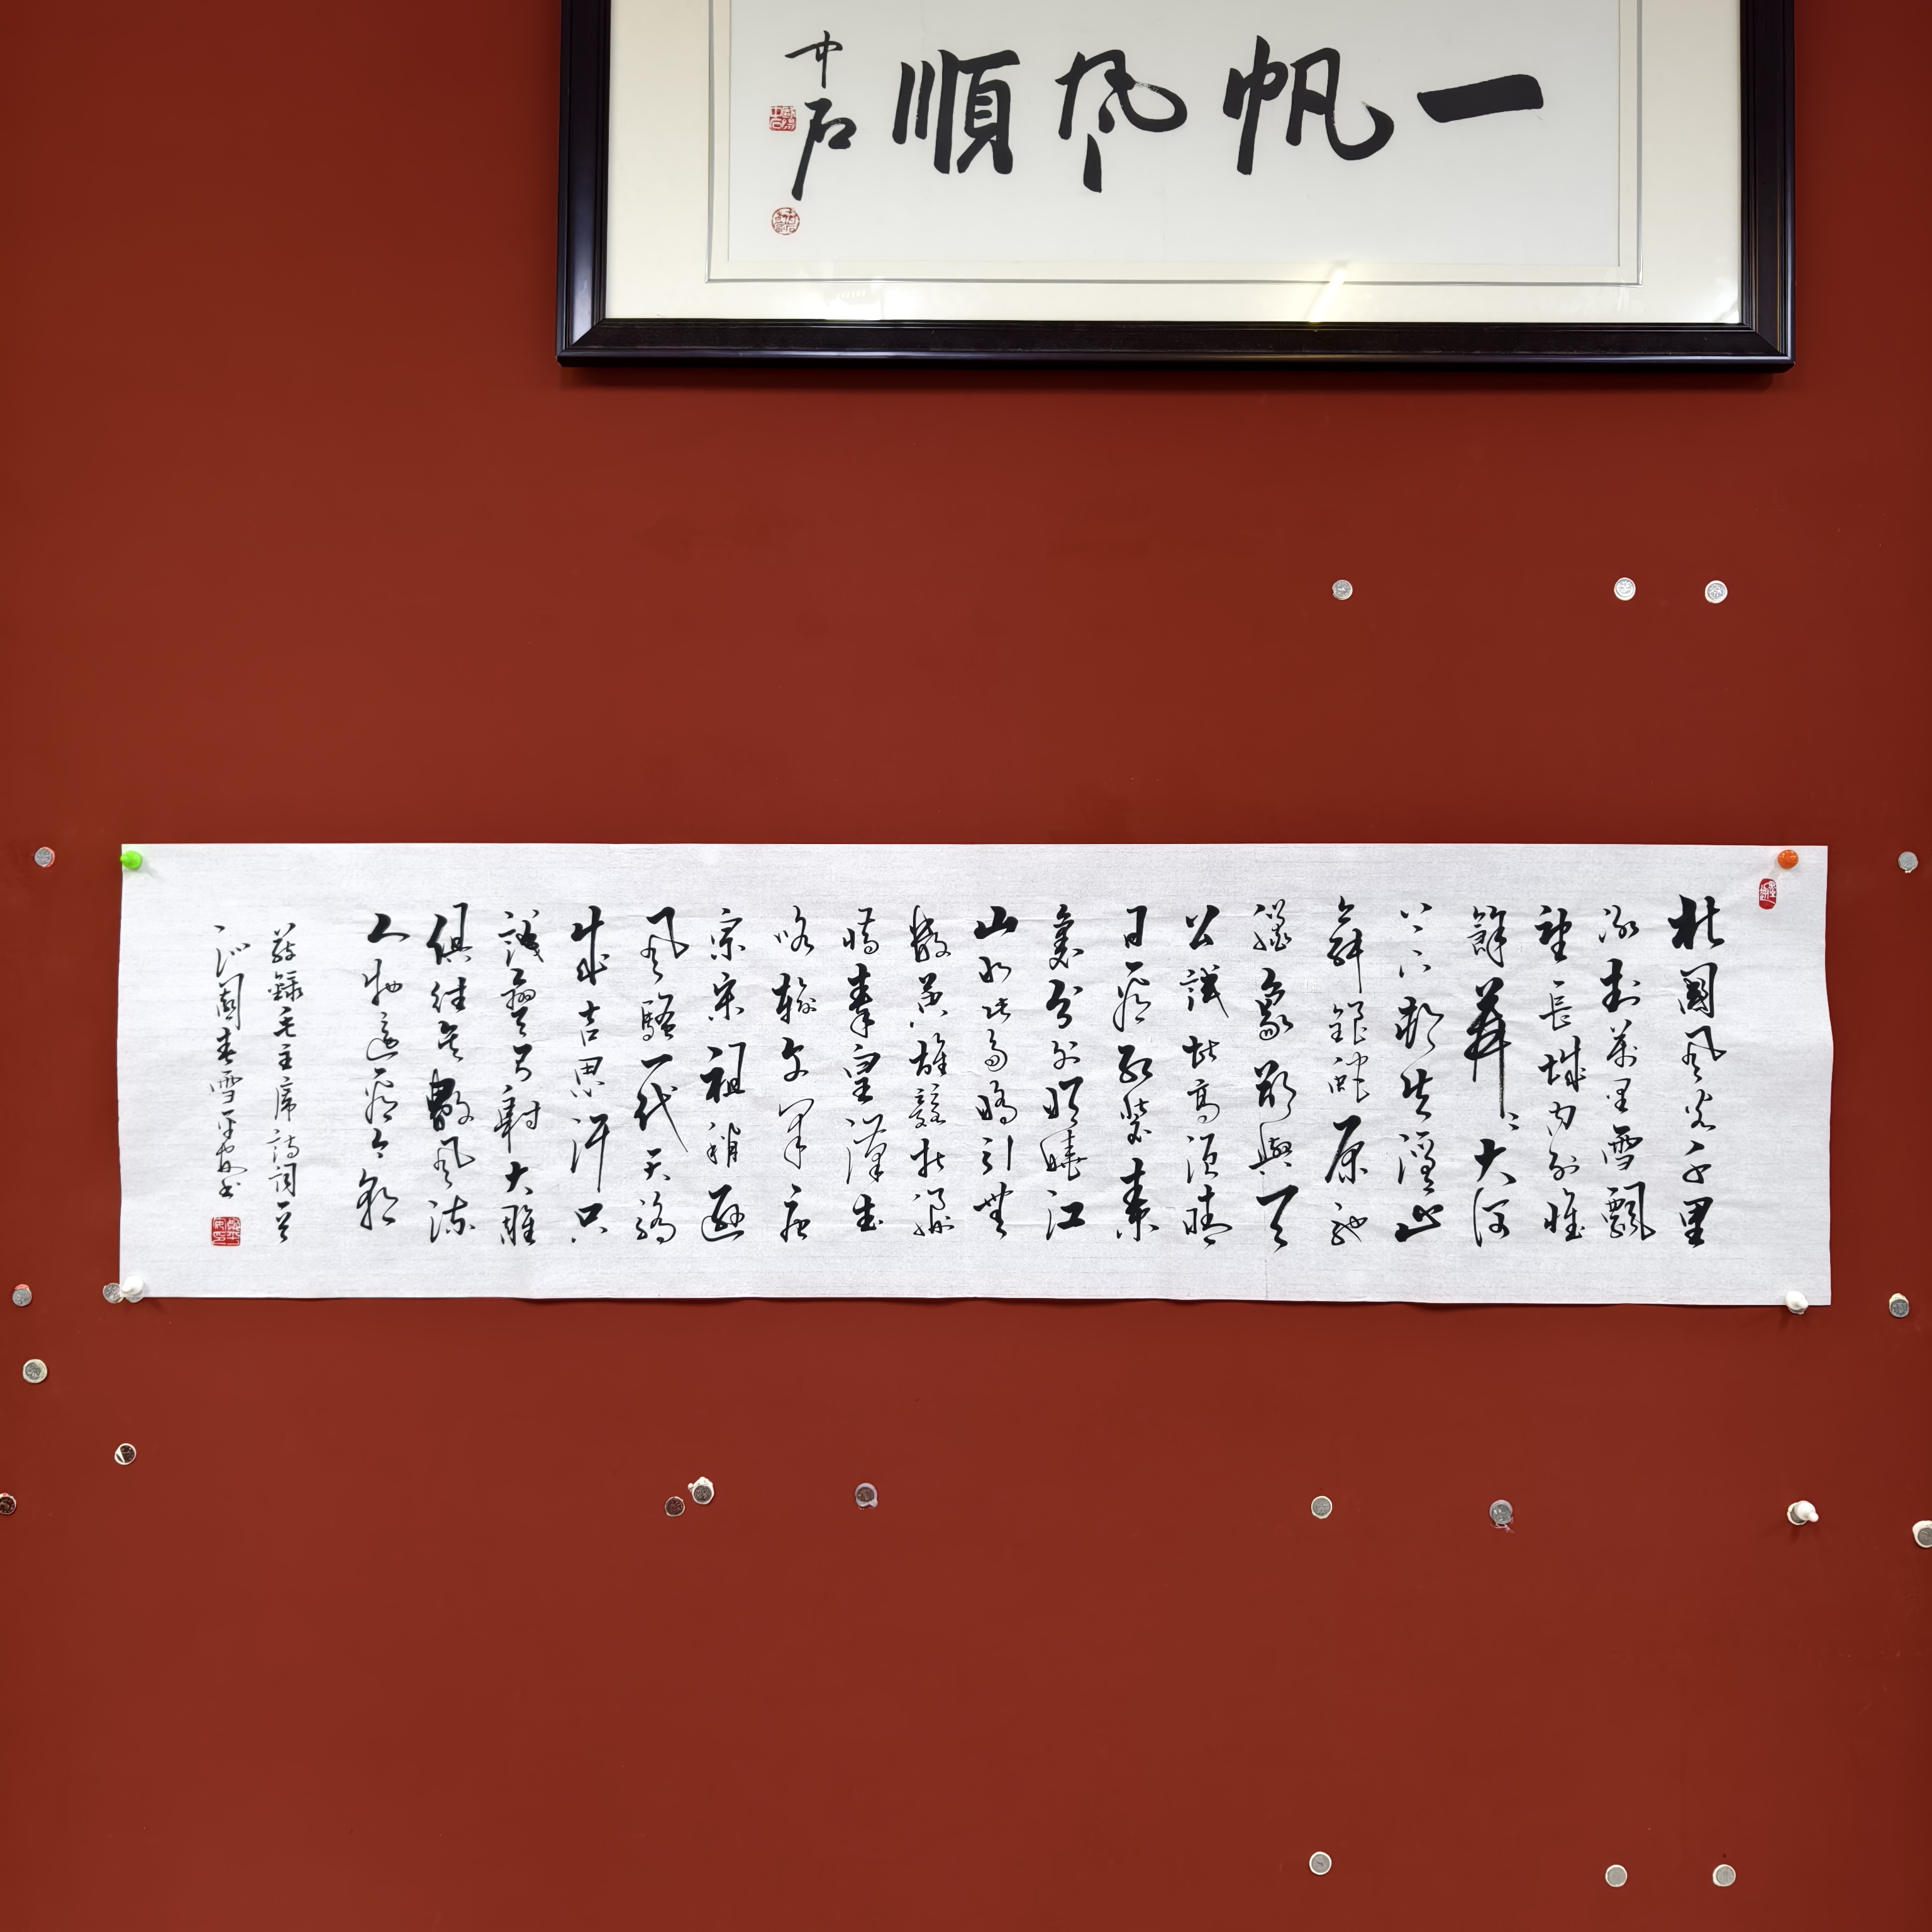 一帆風順
中石
北國風光千里
冰封萬里雪飄
望長城內外惟
餘莽〻大河
上下頓失滔〻山
舞銀蛇原馳
蠟象欲與天
公試比高須晴
日看紅裝素
裹分外妖嬈江
山如此多嬌引無
數英雄競折腰
惜秦皇漢武
略輸文采唐
宗宋祖稍遜
風騷一代天驕
成吉思汗只
識彎弓射大雕
俱往矣數風流
人物還看今朝
敬錄毛主席詩詞一首
沁園春雪平安书